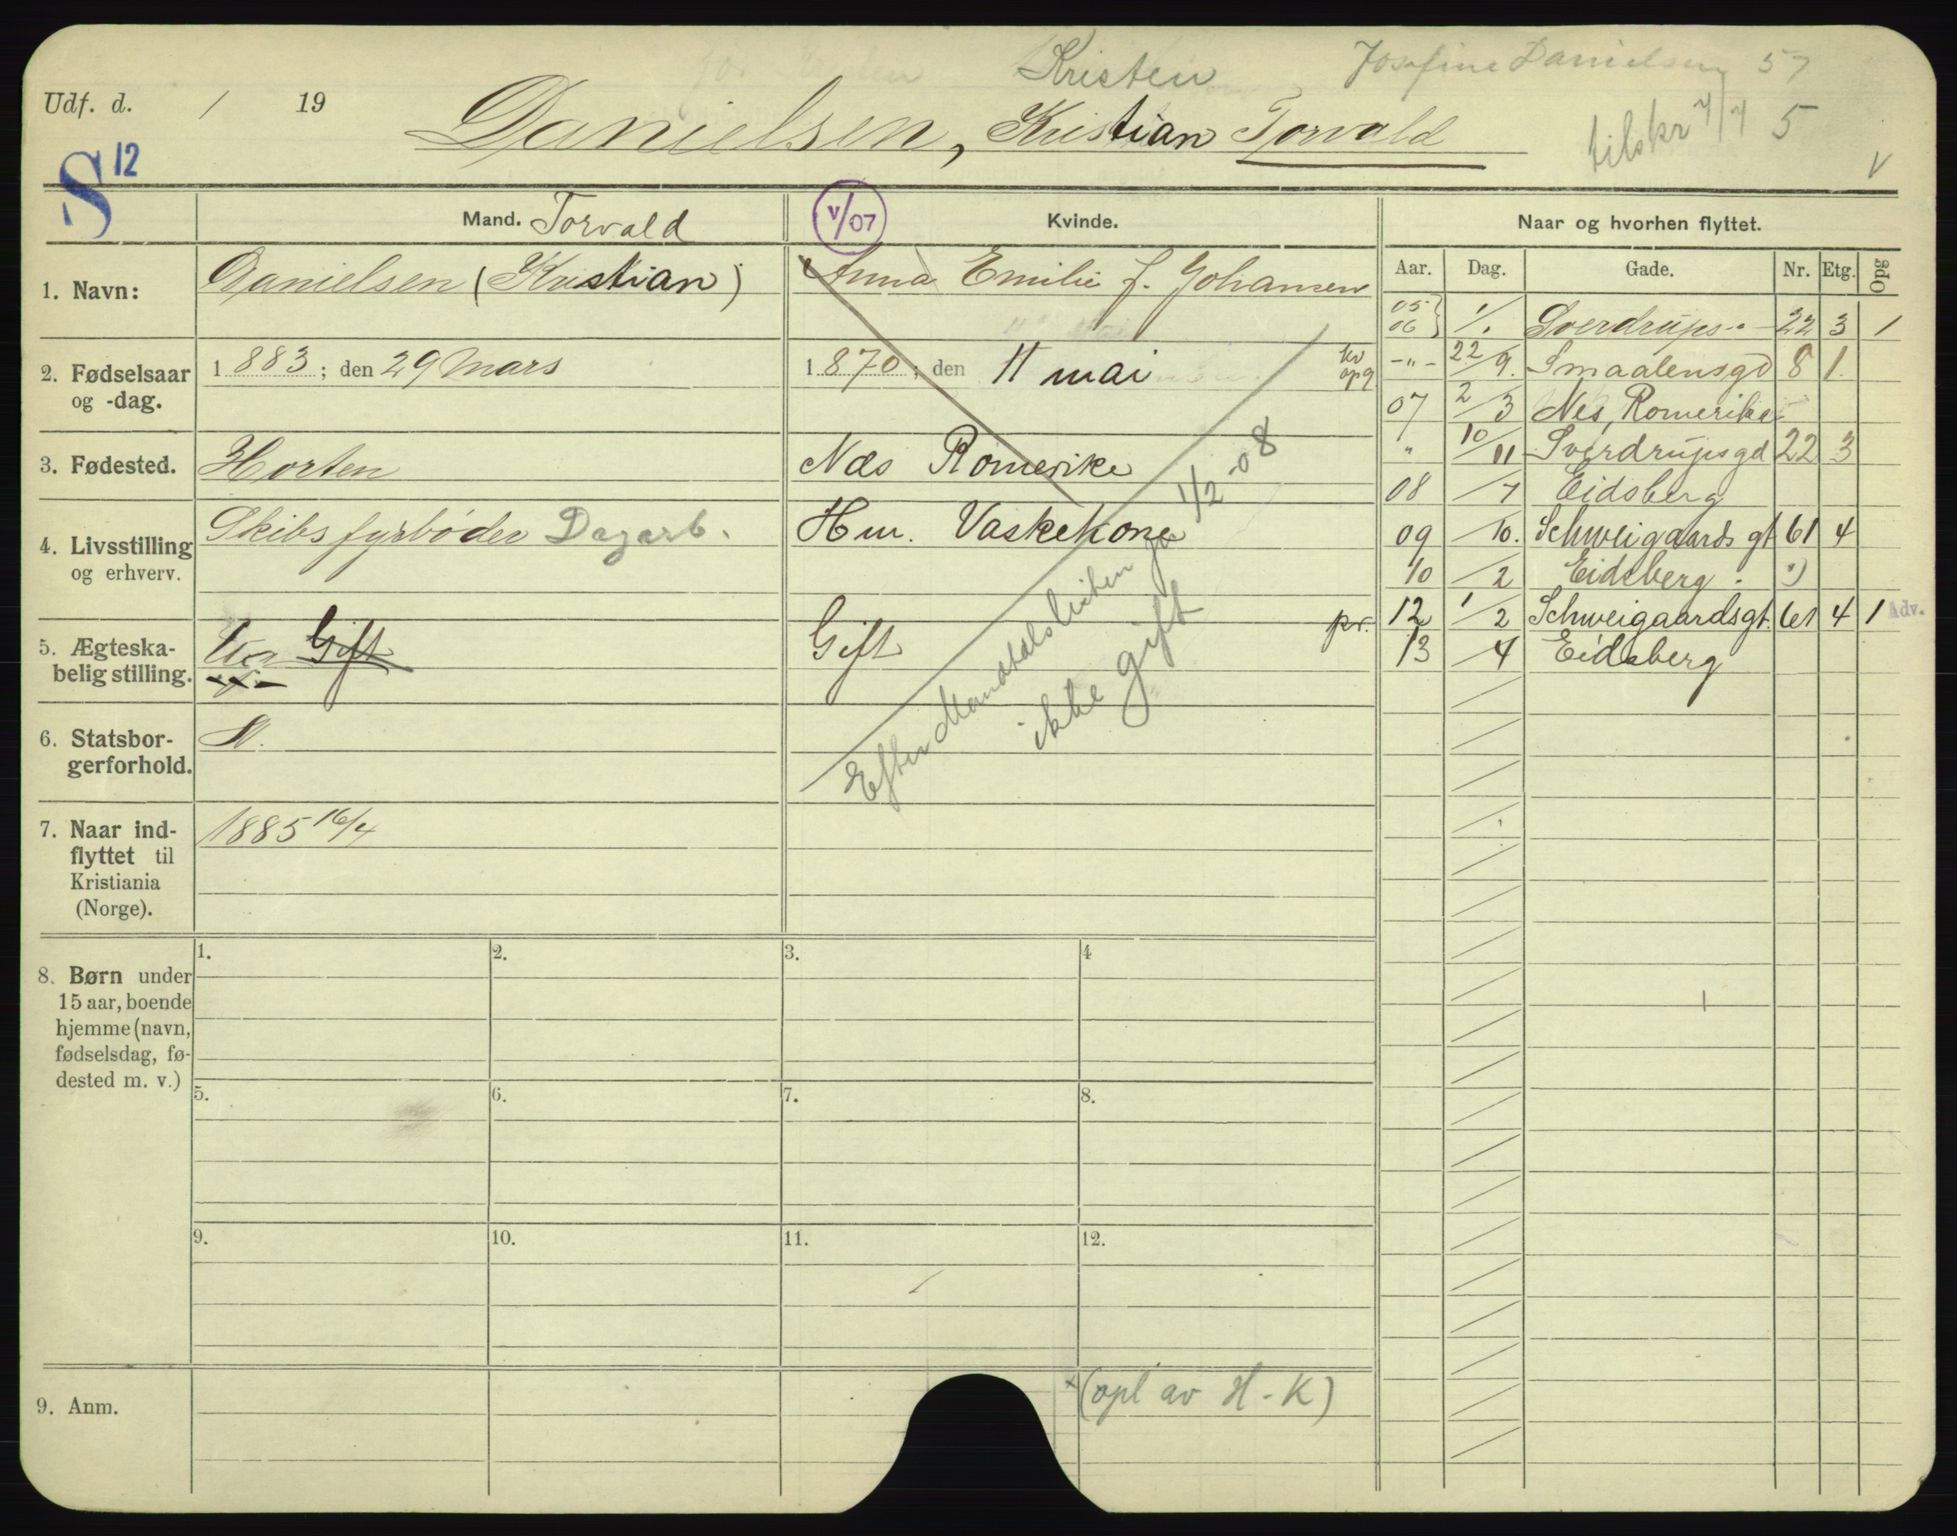 Kristen Josefine Danielsen 57
Udf. d. / 19
Danielsen, Kristian Torvald
tilskr 7/7 5
v
S 12
Mand. Torvald
v/07
Kvinde.
Naar og hvorhen flyttet.
Aar. Dag. Gade. Nr. Etg. Opg
1. Navn: Danielsen (Kristian) Anna Emilie f. Johansen
05 06 } 1/. Sverdrups-"- 22 3 1
2. Fødselsaar og -dag. 1883; den 29 Mars 1870; den 11 mai kv opg
-"- 22/9. Smaalensgd 8 1.
07 2/3 Nes, Romerike
3. Fødested. Horten Næs Romerike
" 10/11 Sverdrupsgd 22 3
08 /7 Eidsberg
4. Livsstilling og erhverv. Skibsfyrbøder Dagarb. Hm. Vaskekone
09 /10. Schweigaards gt 61 4
10 /2 Eidsberg.
5. Ægteskabelig stilling. Gift Gift pr.
12 1/2 Schweigaardsgt. 61 4 1 Adv.
13 /4 Eidsberg
Efter Mandtalslisten 1/2-08
ikke gift
6. Statsborgerforhold. N.
7. Naar indflyttet til Kristiania (Norge). 1885 16/4
8. Børn under 15 aar, boende hjemme (navn, fødselsdag, fødested m. v.)
1. 2. 3. 4
5. 6. 7. 8.
9. 10. 11. 12.
9. Anm. × (opl av H-K)